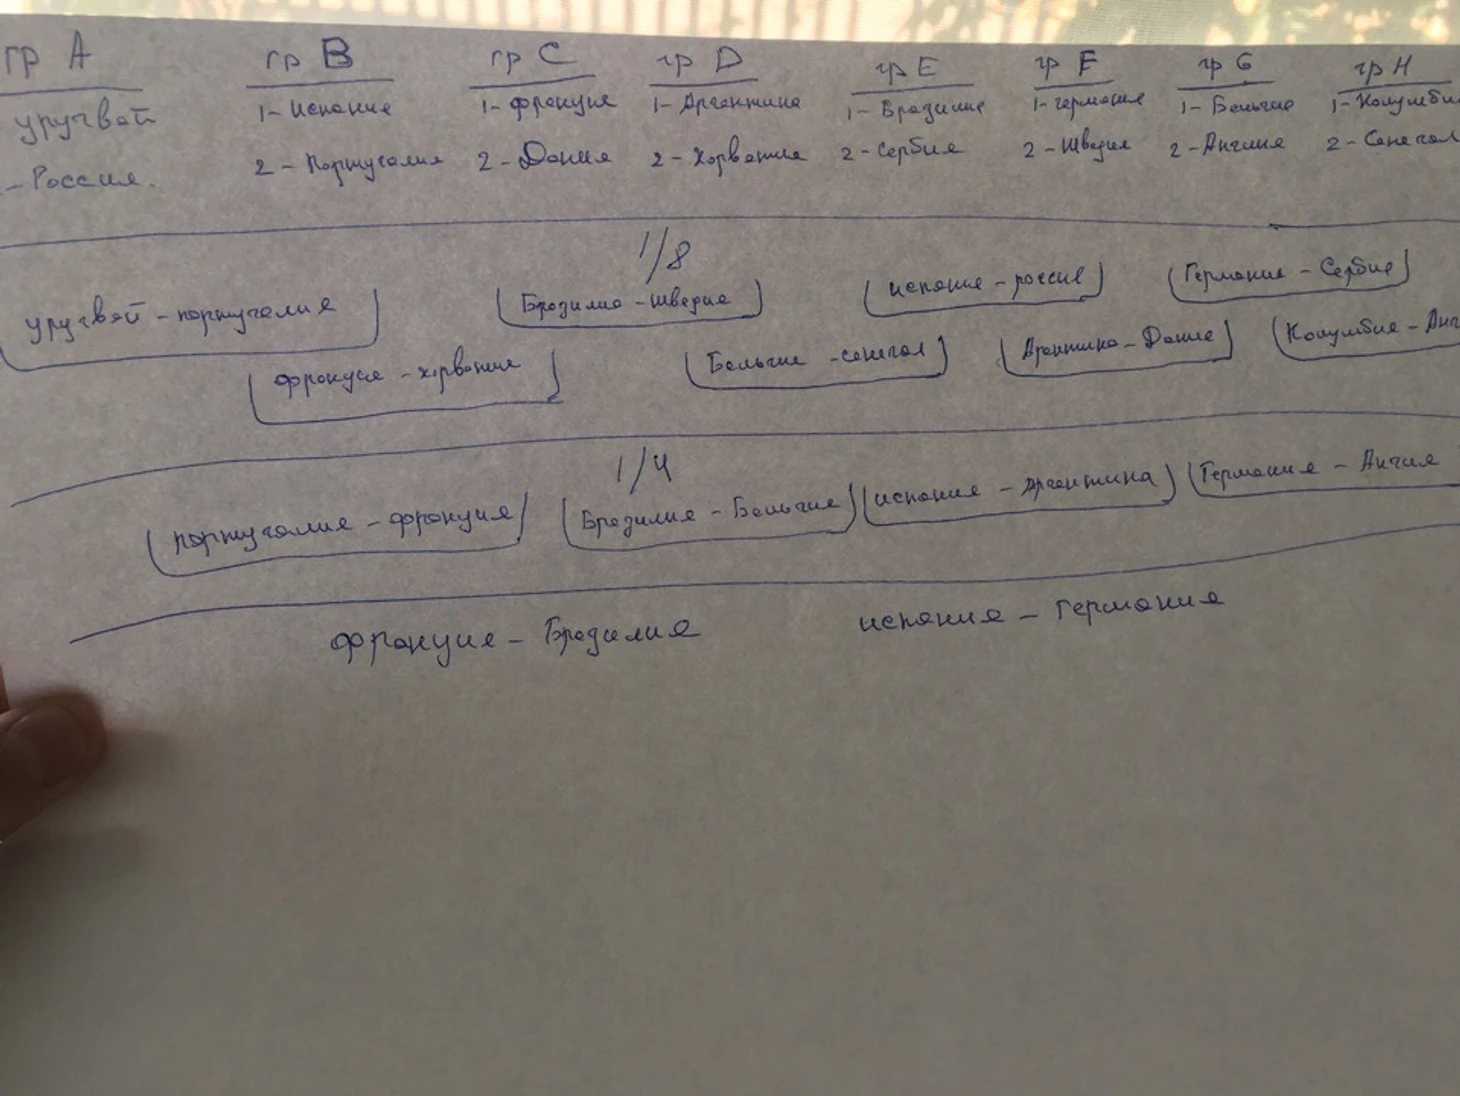 гр А гр В гр С гр D гр Е гр F гр G гр Н
уругвай 1-Испания 1-Франция 1-Аргентина 1-Бразилия 1-германия 1-Бельгия 1-Колумбия
-Россия. 2-Португалия 2-Дания 2-Хорватия 2-Сербия 2-Швеция 2-Англия 2-Сенегал
1/8
уругвай - португалия Бразилия - швеция испания - россия Германия - Сербия
франция - хорватия Бельгия - сенегал Аргентина - Дания Колумбия - Анг
1/4
португалия - франция Бразилия - Бельгия испания - аргентина Германия - Англия
франция - Бразилия испания - Германия